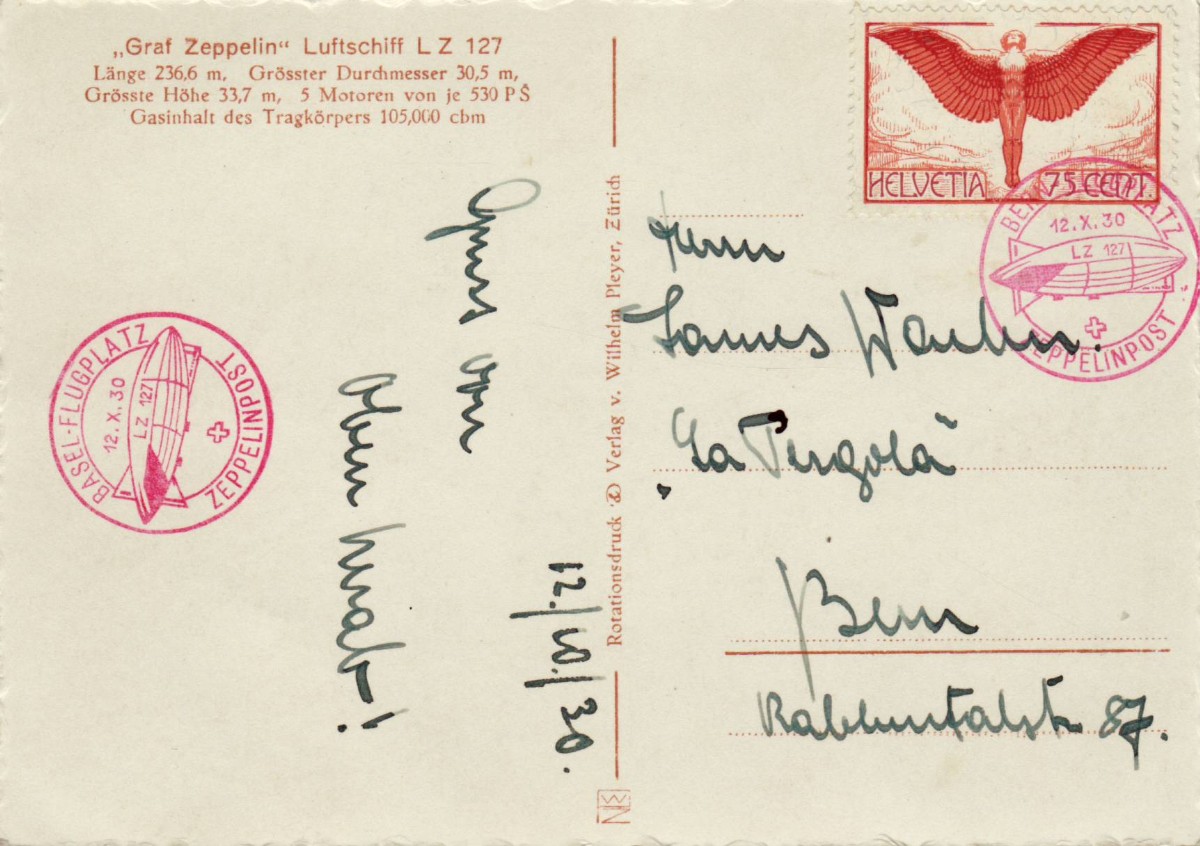 „Graf Zeppelin“ Luftschiff L Z 127
Länge 236,6 m, Grösster Durchmesser 30,5 m,
Grösste Höhe 33,7 m, 5 Motoren von je 530 P S
Gasinhalt des Tragkörpers 105,000 cbm
HELVETIA 75 CENT.
BERN-FLUGPLATZ
12. X. 30
LZ 127
ZEPPELINPOST
BASEL-FLUGPLATZ
12. X. 30
LZ 127
ZEPPELINPOST
12./10./30.
Gruss von
oben herab!
Rotationsdruck u. Verlag v. Wilhelm Pleyer, Zürich
Herrn
James
„La Pergola“
Bern
Rabbentalstr. 87.